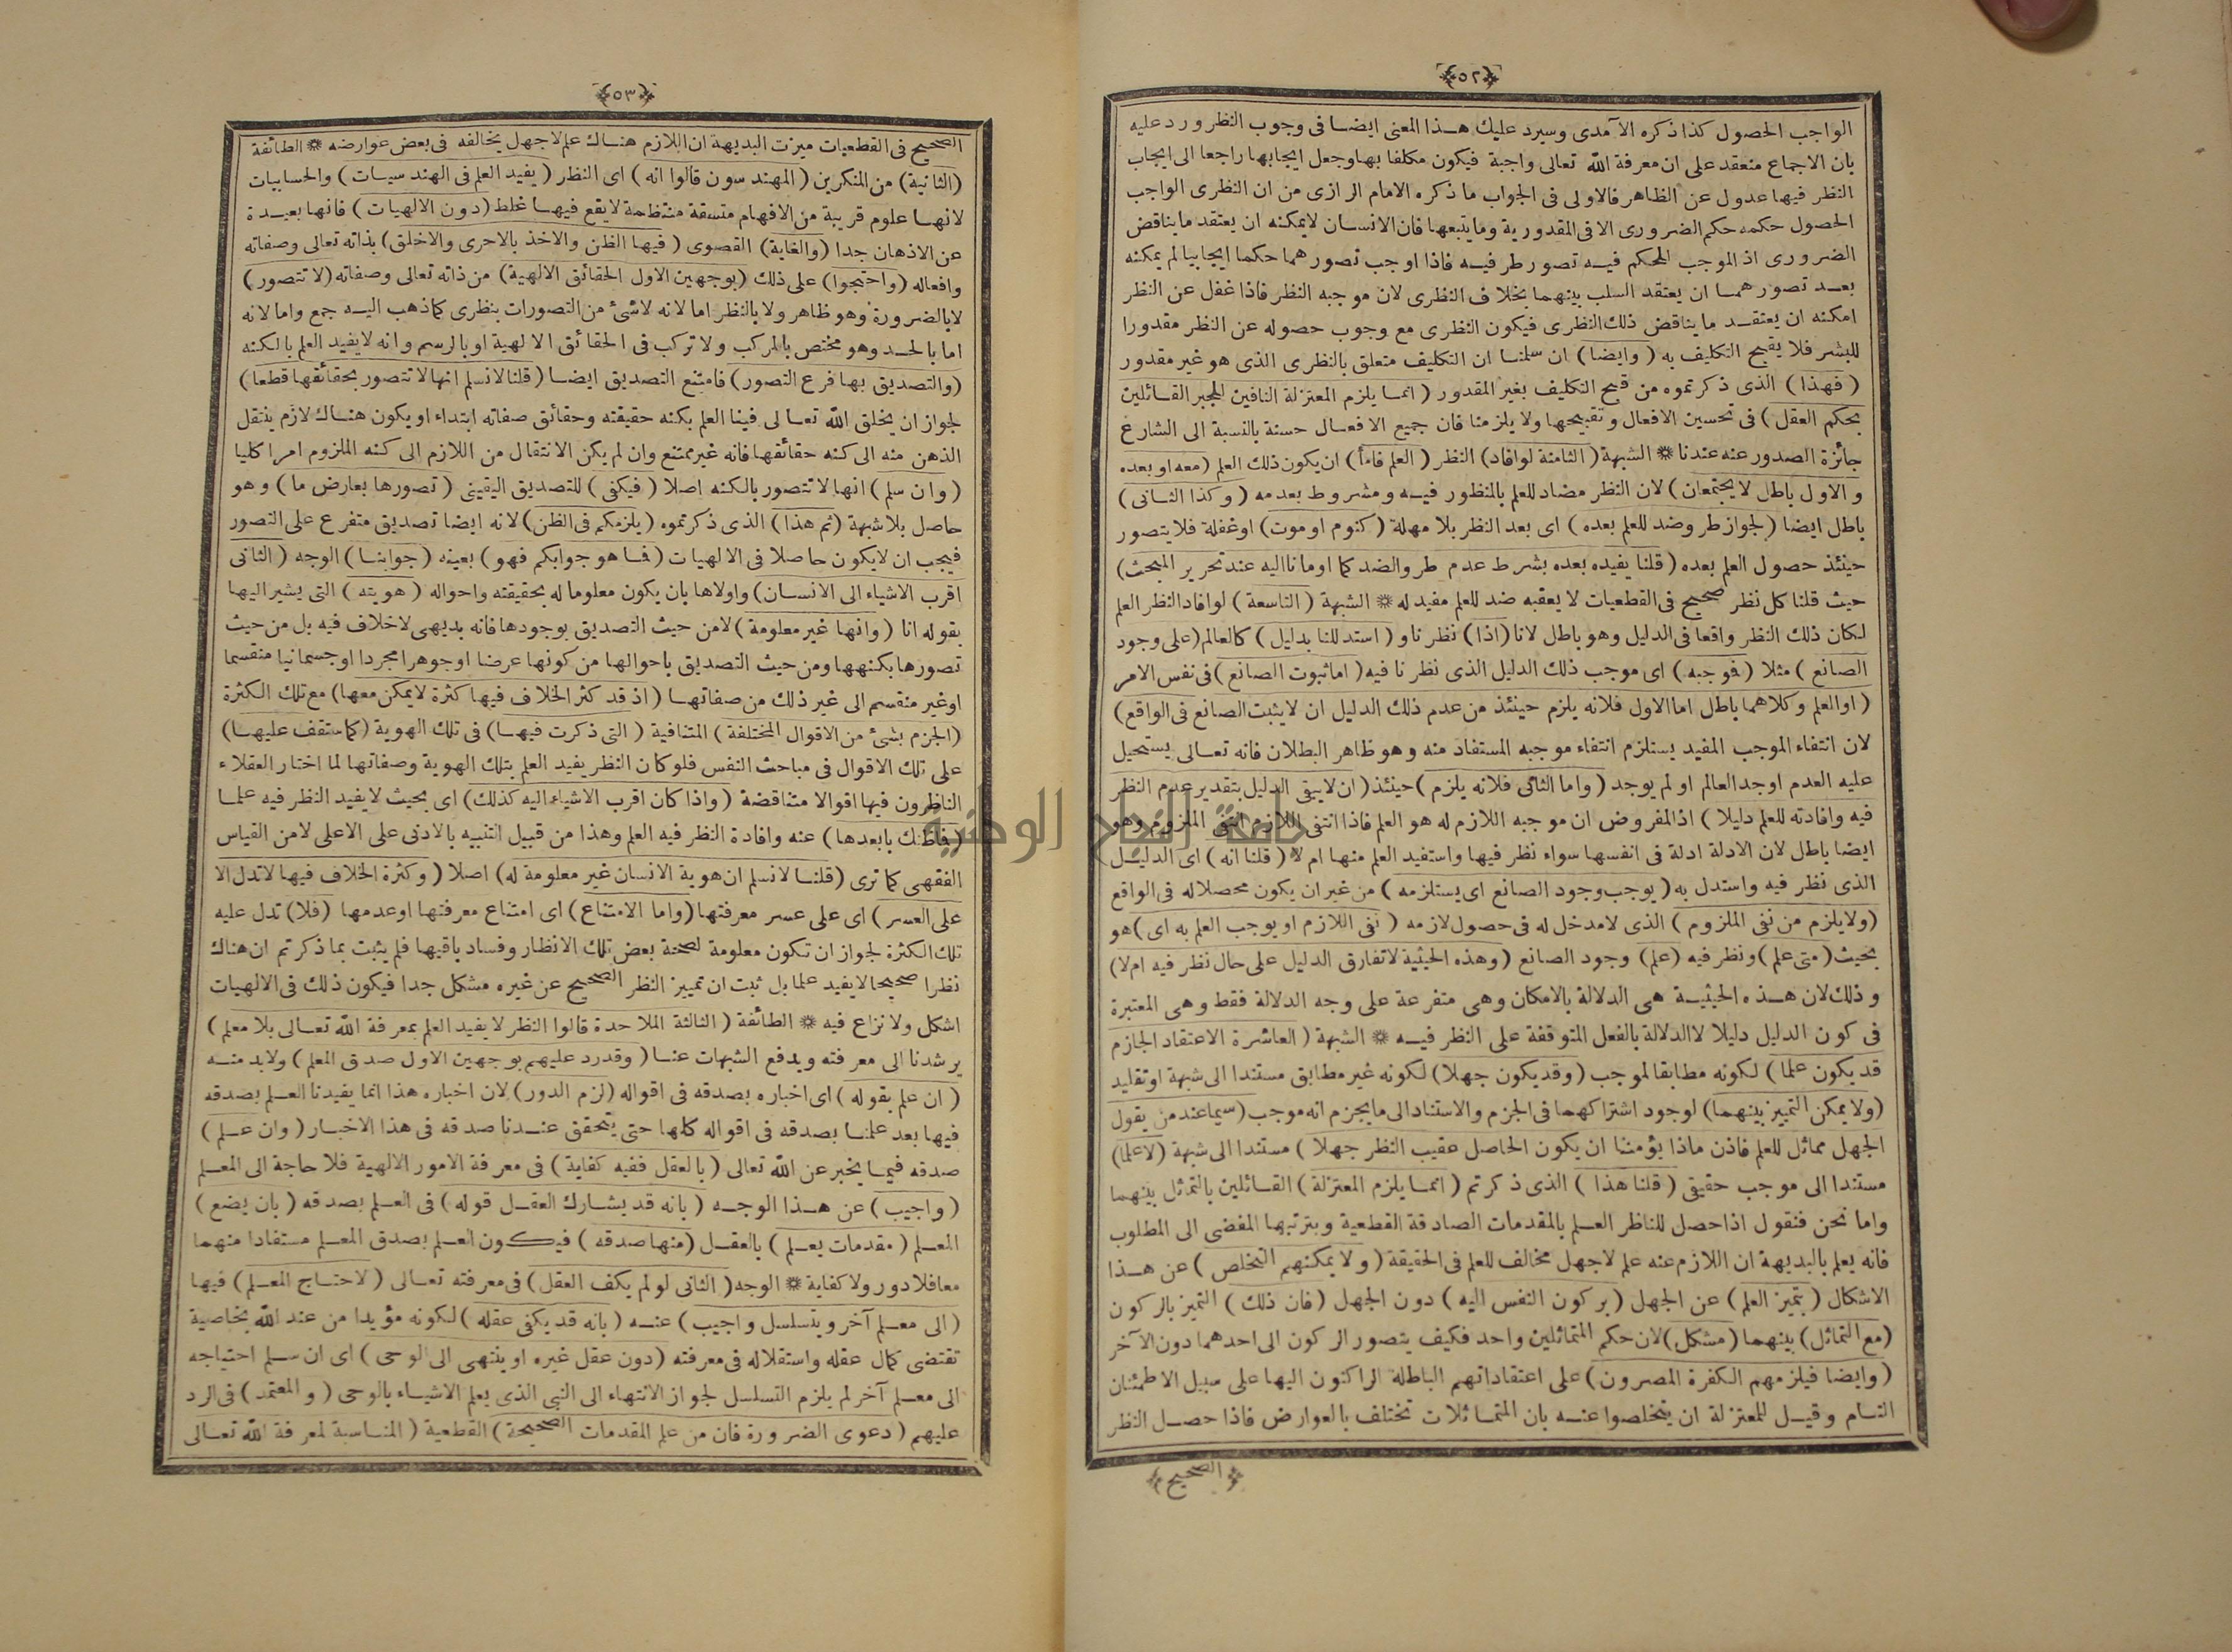 ﴿٥٢﴾
الواجب الحصول كذا ذكره الآمدى وسيرد عليك هذا المعنى ايضا فى وجوب النظر ورد عليه
بان الاجماع منعقد على ان معرفة الله تعالى واجبة فيكون مكلفا بها وجعل ايجابها راجعا الى ايجاب
النظر فيها عدول عن الظاهر فالاولى فى الجواب ما ذكره الامام الرازى من ان النظرى الواجب
الحصول حكمه حكم الضرورى الا فى المقدورية وما يتبعها فان الانسان لا يمكنه ان يعتقد ما يناقض
الضرورى اذ الموجب للحكم فيه تصور طرفيه فاذا اوجب تصورهما حكما ايجابيا لم يمكنه
بعد تصورهما ان يعتقد السلب بينهما بخلاف النظرى لان موجبه النظر فاذا غفل عن النظر
امكنه ان يعتقد ما يناقض ذلك النظرى فيكون النظرى مع وجوب حصوله عن النظر مقدورا
للبشر فلا يقبح التكليف به (وايضا) ان سلمنا ان التكليف متعلق بالنظرى الذى هو غير مقدور
(فهذا) الذى ذكرتموه من قبح التكليف بغير المقدور (انما يلزم المعتزلة النافين للجبر القائلين
بحكم العقل) فى تحسين الافعال وتقبيحها ولا يلزمنا فان جميع الافعال حسنة بالنسبة الى الشارع
جائزة الصدور عنه عندنا * الشبهة (الثامنة لو افاد) النظر (العلم فاما) ان يكون ذلك العلم (معه او بعده
والاول باطل لا يجتمعان) لان النظر مضاد للعلم بالمنظور فيه ومشروط بعدمه (وكذا الثانى)
باطل ايضا (لجواز طروضد للعلم بعده) اى بعد النظر بلا مهلة (كنوم او موت) او غفلة فلا يتصور
حينئذ حصول العلم بعده (قلنا يفيده بعده بشرط عدم طروالضد كما اومانا اليه عند تحرير المبحث)
حيث قلنا كل نظر صحيح فى القطعيات لا يعقبه ضد للعلم مفيد له * الشبهة (التاسعة) لو افاد النظر العلم
لكان ذلك النظر واقعا فى الدليل وهو باطل لانا (اذا) نظرنا و (استدللنا بدليل) كالعالم (على وجود
الصانع) مثلا (فوجبه) اى موجب ذلك الدليل الذى نظرنا فيه (اما ثبوت الصانع) فى نفس الامر
(او العلم وكلاهما باطل اما الاول فلانه يلزم حينئذ من عدم ذلك الدليل ان لا يثبت الصانع فى الواقع)
لان انتفاء الموجب المفيد يستلزم انتفاء موجبه المستفاد منه وهو ظاهر البطلان فانه تعالى يستحيل
عليه العدم اوجد العالم او لم يوجد (واما الثانى فلانه يلزم) حينئذ (ان لا يبقى الدليل بتقدير عدم النظر
فيه وافادته للعلم دليلا) اذ المفروض ان موجبه اللازم له هو العلم فاذا انتفى اللازم انتفى الملزوم وهو
ايضا باطل لان الادلة ادلة فى انفسها سواء نظر فيها واستفيد العلم منها ام لا (قلنا انه) اى الدليل
الذى نظر فيه واستدل به (يوجب وجود الصانع اى يستلزمه) من غير ان يكون محصلا له فى الواقع
(ولا يلزم من نفى الملزوم) الذى لا مدخل له فى حصول لازمه (نفى اللازم او يوجب العلم به اى) هو
بحيث (متى علم) ونظر فيه (علم) وجود الصانع (وهذه الحيثية لا تفارق الدليل على حال نظر فيه ام لا)
وذلك لان هذه الحيثية هى الدلالة بالامكان وهى متفرعة على وجه الدلالة فقط وهى المعتبرة
فى كون الدليل دليلا لا الدلالة بالفعل المتوقفة على النظر فيه * الشبهة (العاشرة الاعتقاد الجازم
قد يكون علما) لكونه مطابقا لموجب (وقد يكون جهلا) لكونه غير مطابق مستندا الى شبهة او تقليد
(ولا يمكن التمييز بينهما) لوجود اشتراكهما فى الجزم والاستناد الى ما يجزم انه موجب (سيما عند من يقول
الجهل مماثل للعلم فاذن ماذا يؤمننا ان يكون الحاصل عقيب النظر جهلا) مستندا الى شبهة (لا علما)
مستندا الى موجب حقيقى (قلنا هذا) الذى ذكرتم (انما يلزم المعتزلة) القائلين بالتماثل بينهما
واما نحن فنقول اذا حصل للناظر العلم بالمقدمات الصادقة القطعية وبترتيبها المفضى الى المطلوب
فانه يعلم بالبديهة ان اللازم عنه علم لا جهل مخالف للعلم فى الحقيقة (ولا يمكنهم التخلص) عن هذا
الاشكال (بتميز العلم) عن الجهل (بركون النفس اليه) دون الجهل (فان ذلك) التميز بالركون
(مع التماثل) بينهما (مشكل) لان حكم المتماثلين واحد فكيف يتصور الركون الى احدهما دون الآخر
(وايضا فيلزمهم الكفرة المصرون) على اعتقاداتهم الباطلة الراكنون اليها على سبيل الاطمئنان
التام وقيل للمعتزلة ان يتخلصوا عنه بان المتماثلات تختلف بالعوارض فاذا حصل النظر
﴿الصحيح﴾
﴿٥٣﴾
الصحيح فى القطعيات ميزت البديهة ان اللازم هناك علم لا جهل يخالفه فى بعض عوارضه * الطائفة
(الثانية) من المنكرين (المهندسون قالوا انه) اى النظر (يفيد العلم فى الهندسيات) والحسابيات
لانها علوم قريبة من الافهام متسقة منتظمة لا يقع فيها غلط (دون الالهيات) فانها بعيدة
عن الاذهان جدا (والغاية) القصوى (فيها الظن والاخذ بالاحرى والاخلق) بذاته تعالى وصفاته
وافعاله (واحتجوا) على ذلك (بوجهين الاول الحقائق الالهية) من ذاته تعالى وصفاته (لا تتصور)
لا بالضرورة وهو ظاهر ولا بالنظر اما لانه لا شئ من التصورات بنظرى كما ذهب اليه جمع واما لانه
اما بالحد وهو مختص بالمركب ولا تركب فى الحقائق الالهية او بالرسم وانه لا يفيد العلم بالكنه
(والتصديق بها فرع التصور) فامتنع التصديق ايضا (قلنا لا نسلم انها لا تتصور بحقائقها قطعا)
لجواز ان يخلق الله تعالى فينا العلم بكنه حقيقته وحقائق صفاته ابتداء او يكون هناك لازم ينتقل
الذهن منه الى كنه حقائقها فانه غير ممتنع وان لم يكن الانتقال من اللازم الى كنه الملزوم امرا كليا
(وان سلم) انها لا تتصور بالكنه اصلا (فيكفى) للتصديق اليقينى (تصورها بعارض ما) وهو
حاصل بلا شبهة (ثم هذا) الذى ذكرتموه (يلزمكم فى الظن) لانه ايضا تصديق متفرع على التصور
فيجب ان لا يكون حاصلا فى الالهيات (فما هو جوابكم فهو) بعينه (جوابنا) الوجه (الثانى
اقرب الاشياء الى الانسان) واولاها بان يكون معلوما له بحقيقته واحواله (هويته) التى يشير اليها
بقوله انا (وانها غير معلومة) لا من حيث التصديق بوجودها فانه بديهى لا خلاف فيه بل من حيث
تصورها بكنهها ومن حيث التصديق باحوالها من كونها عرضا او جوهرا مجردا او جسمانيا منقسما
او غير منقسم الى غير ذلك من صفاتها (اذ قد كثر الخلاف فيها كثرة لا يمكن معها) مع تلك الكثرة
(الجزم بشئ من الاقوال المختلفة) المتنافية (التى ذكرت فيها) فى تلك الهوية (كما ستقف عليها)
على تلك الاقوال فى مباحث النفس فلو كان النظر يفيد العلم بتلك الهوية وصفاتها لما اختار العقلاء
الناظرون فيها اقوالا متناقضة (واذا كان اقرب الاشياء اليه كذلك) اى بحيث لا يفيد النظر فيه علما
(فما ظنك بابعدها) عنه وافادة النظر فيه العلم وهذا من قبيل التنبيه بالادنى على الاعلى لا من القياس
الفقهى كما ترى (قلنا لا نسلم ان هوية الانسان غير معلومة له) اصلا (وكثرة الخلاف فيها لا تدل الا
على العسر) اى على عسر معرفتها (واما الامتناع) اى امتناع معرفتها او عدمها (فلا) تدل عليه
تلك الكثرة لجواز ان تكون معلومة لصحة بعض تلك الانظار وفساد باقيها فلم يثبت بما ذكرتم ان هناك
نظرا صحيحا لا يفيد علما بل ثبت ان تمييز النظر الصحيح عن غيره مشكل جدا فيكون ذلك فى الالهيات
اشكل ولا نزاع فيه * الطائفة (الثالثة الملاحدة قالوا النظر لا يفيد العلم بمعرفة الله تعالى بلا معلم)
يرشدنا الى معرفته ويدفع الشبهات عنا (وقد رد عليهم بوجهين الاول صدق المعلم) ولا بد منه
(ان علم بقوله) اى اخباره بصدقه فى اقواله (لزم الدور) لان اخباره هذا انما يفيدنا العلم بصدقه
فيها بعد علمنا بصدقه فى اقواله كلها حتى يتحقق عندنا صدقه فى هذا الاخبار (وان علم)
صدقه فيما يخبر عن الله تعالى (بالعقل ففيه كفاية) فى معرفة الامور الالهية فلا حاجة الى المعلم
(واجيب) عن هذا الوجه (بانه قد يشارك العقل قوله) فى العلم بصدقه (بان يضع)
المعلم (مقدمات يعلم) بالعقل (منها صدقه) فيكون العلم بصدق المعلم مستفادا منهما
معا فلا دور ولا كفاية * الوجه (الثانى لو لم يكف العقل) فى معرفته تعالى (لاحتاج المعلم) فيها
(الى معلم آخر ويتسلسل واجيب) عنه (بانه قد يكفى عقله) لكونه مؤيدا من عند الله بخاصية
تقتضى كمال عقله واستقلاله فى معرفته (دون عقل غيره او ينتهى الى الوحى) اى ان سلم احتياجه
الى معلم آخر لم يلزم التسلسل لجواز الانتهاء الى النبى الذى يعلم الاشياء بالوحى (والمعتمد) فى الرد
عليهم (دعوى الضرورة فان من علم المقدمات الصحيحة) القطعية (المناسبة لمعرفة الله تعالى
جامعة النجاح الوطنية